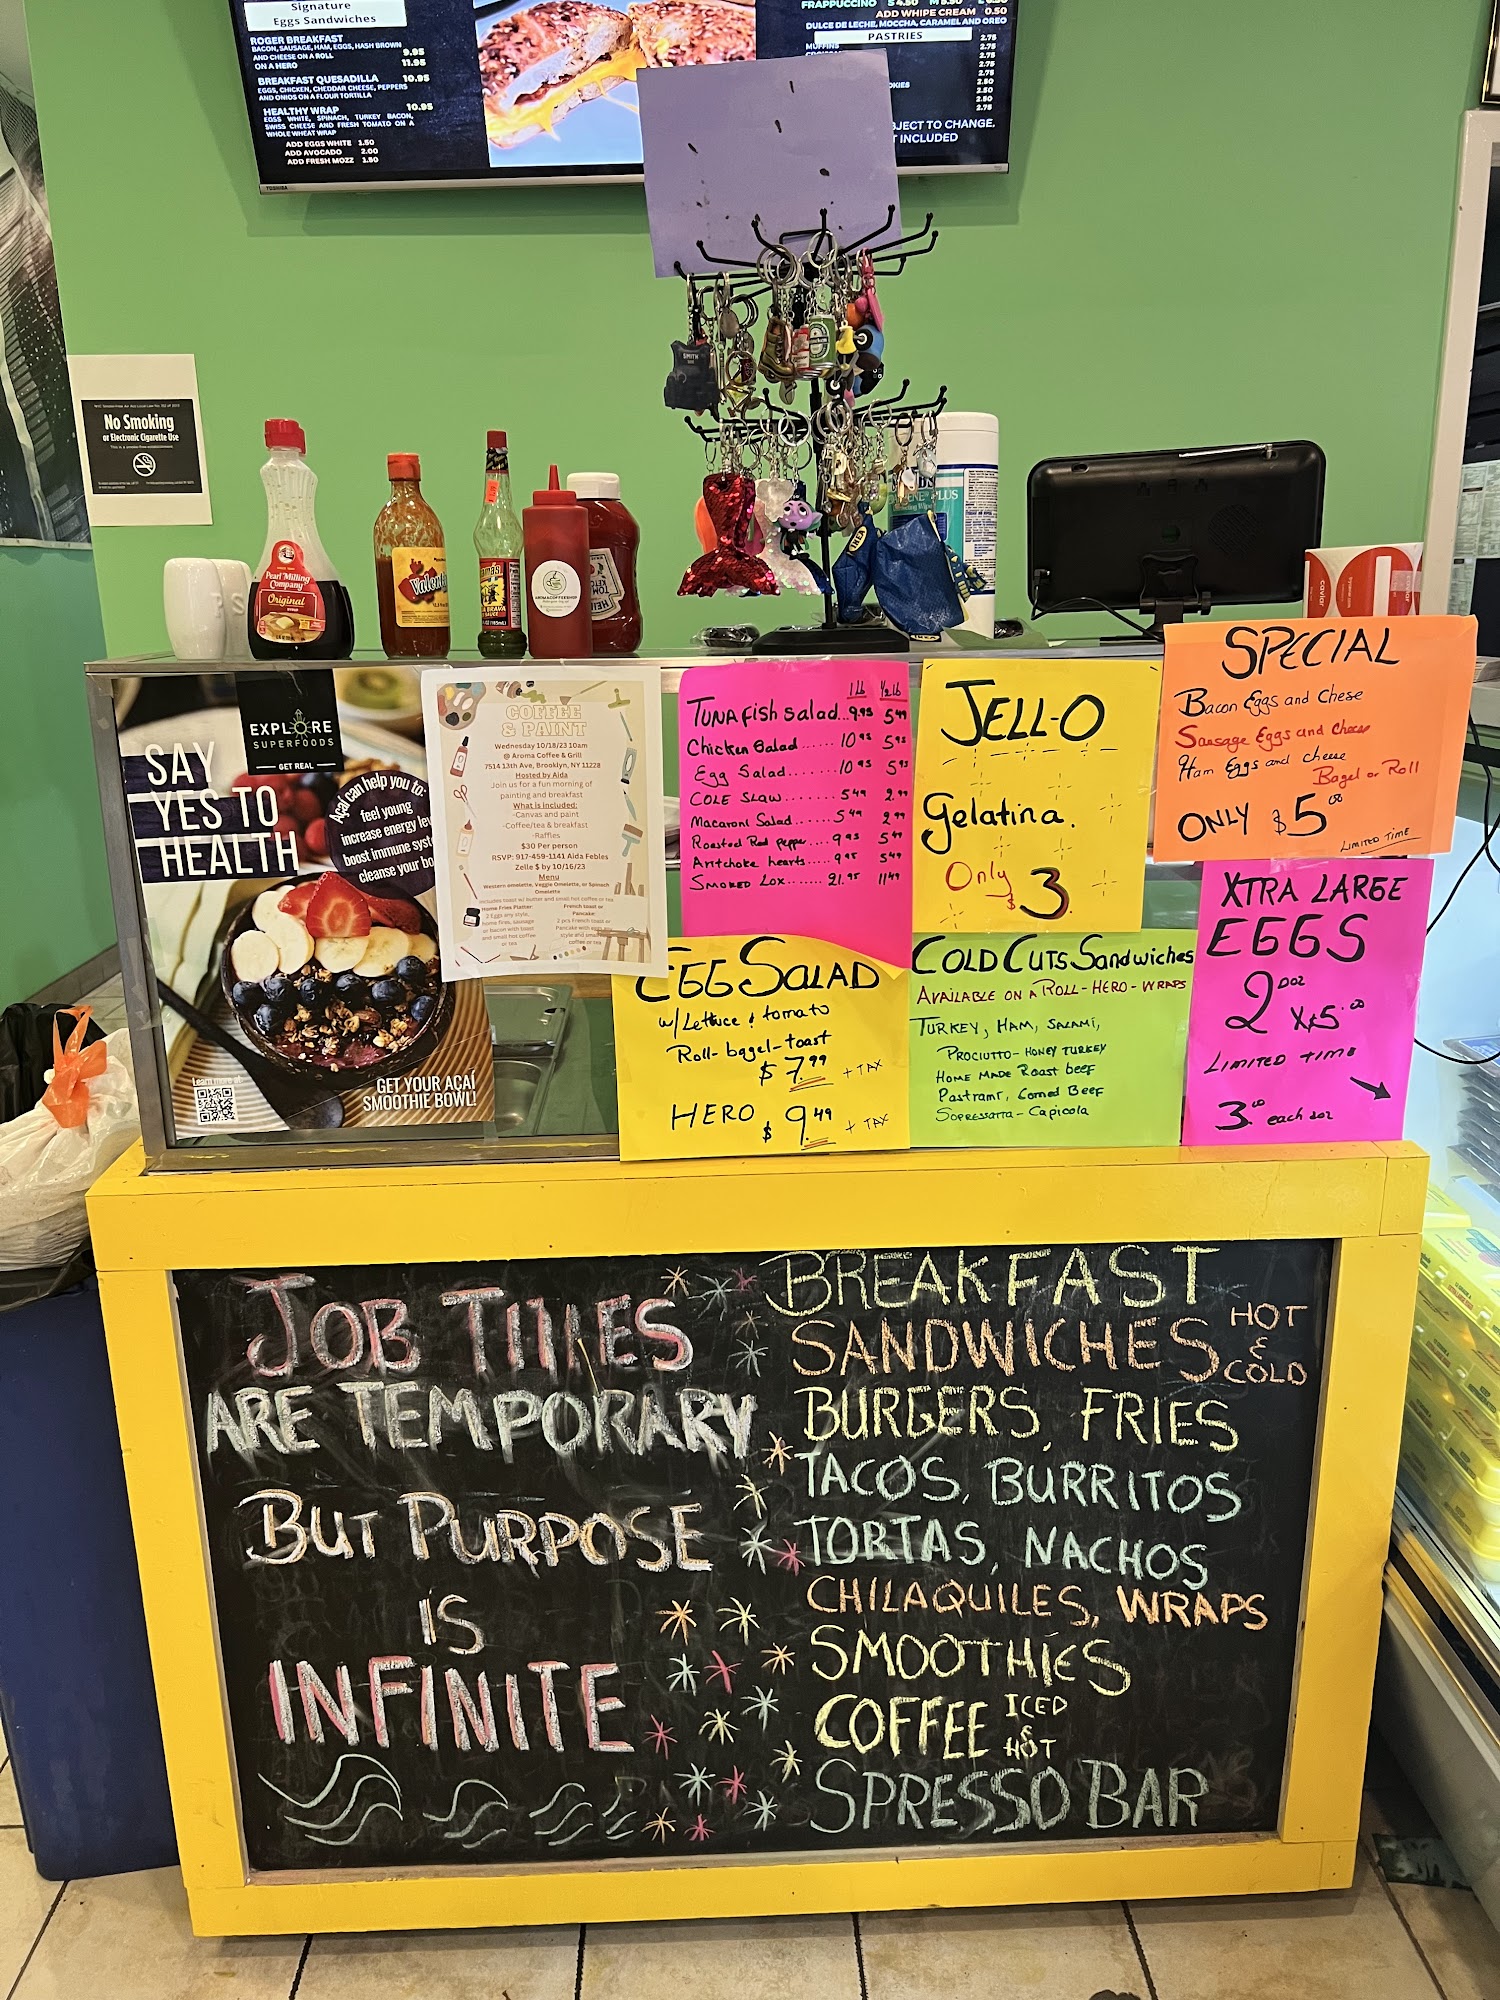 Signature
Eggs Sandwiches
ROGER BREAKFAST
BACON, SAUSAGE, HAM, EGGS, HASH BROWN
AND CHEESE ON A ROLL 9.95
ON A HERO 11.95
BREAKFAST QUESADILLA 10.95
EGGS, CHICKEN, CHEDDAR CHEESE, PEPPERS
AND ONIOS ON A FLOUR TORTILLA
HEALTHY WRAP 10.95
EGSS WHITE, SPINACH, TURKEY BACON,
SWISS CHEESE AND FRESH TOMATO ON A
WHOLE WHEAT WRAP
ADD EGGS WHITE 1.50
ADD AVOCADO 2.00
ADD FRESH MOZZ 1.50
TOSHIBA
FRAPPUCCINO S 4.50 M 5.50
ADD WHIPE CREAM 0.50
DULCE DE LECHE, MOCCHA, CARAMEL AND OREO
PASTRIES
MUFFINS 2.75
2.75
2.75
2.75
2.50
2.50
2.50
2.75
BJECT TO CHANGE.
T INCLUDED
No Smoking
or Electronic Cigarette Use
Pearl Milling
Company
Original
SMITH
IKEA
caviar
EXPLORE
SUPERFOODS
GET REAL
SAY
YES TO
HEALTH
Açaí can help you to:
feel young
increase energy lev
boost immune syst
cleanse your bo
Learn more at
GET YOUR AÇAÍ
SMOOTHIE BOWL!
COFFEE
& PAINT
Wednesday 10/18/23 10am
@ Aroma Coffee & Grill
7514 13th Ave, Brooklyn, NY 11228
Hosted by Aida
Join us for a fun morning of
painting and breakfast
What is included:
-Canvas and paint
-Coffee/tea & breakfast
-Raffles
$30 Per person
RSVP: 917-459-1141 Aida Febles
Zelle $ by 10/16/23
Menu
Western omelette, Veggie Omelette, or Spinach
Omelette
includes toast w/ butter and small hot coffee or tea
Home Fries Platter:
2 Eggs any style,
home fries, sausage
or bacon with toast
and small hot coffee
or tea
French toast or
Pancake:
2 pcs French toast or
Pancake with eggs any
style and small
coffee or tea
1 Lb ½ Lb
TUNA Fish Salad...9.95 5.49
Chicken Salad......10.95 5.95
Egg Salad........10.95 5.95
COLE SLAW........5.49 2.99
Macaroni Salad.....5.49 2.99
Roasted Red peppe...9.95 5.49
Artichoke hearts....9.95 5.49
SMOKED LOX.......21.95 11.49
JELL-O
Gelatina.
Only
$3.
SPECIAL
Bacon Eggs and Chese
Sausage Eggs and Cheese
Ham Eggs and cheese
Bagel or Roll
ONLY $5.00
LIMITED TIME
EGG SALAD
w/Lettuce & tomato
Roll-bagel-toast
$7.99 + TAX
HERO $9.49 + TAX
COLD CUTS Sandwiches
AVAILABLE ON A ROLL-HERO-WRAPS
TURKEY, HAM, SALAMI,
PROCIUTTO-HONEY TURKEY
HOME MADE Roast beef
Pastrami, Corned Beef
SOPRESSATTA-Capicola
XTRA LARGE
EGGS
2 DOZ X$5.00
LIMITED TIME
3.00 each doz
JOB TITLES
ARE TEMPORARY
BUT PURPOSE
IS
INFINITE
BREAKFAST
SANDWICHES HOT & COLD
BURGERS, FRIES
TACOS, BURRITOS
TORTAS, NACHOS
CHILAQUILES, WRAPS
SMOOTHIES
COFFEE ICED & HOT
SPRESSO BAR